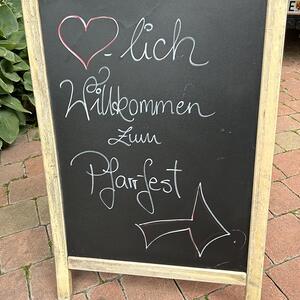 ♡-lich
Willkommen
zum
Pfarrfest